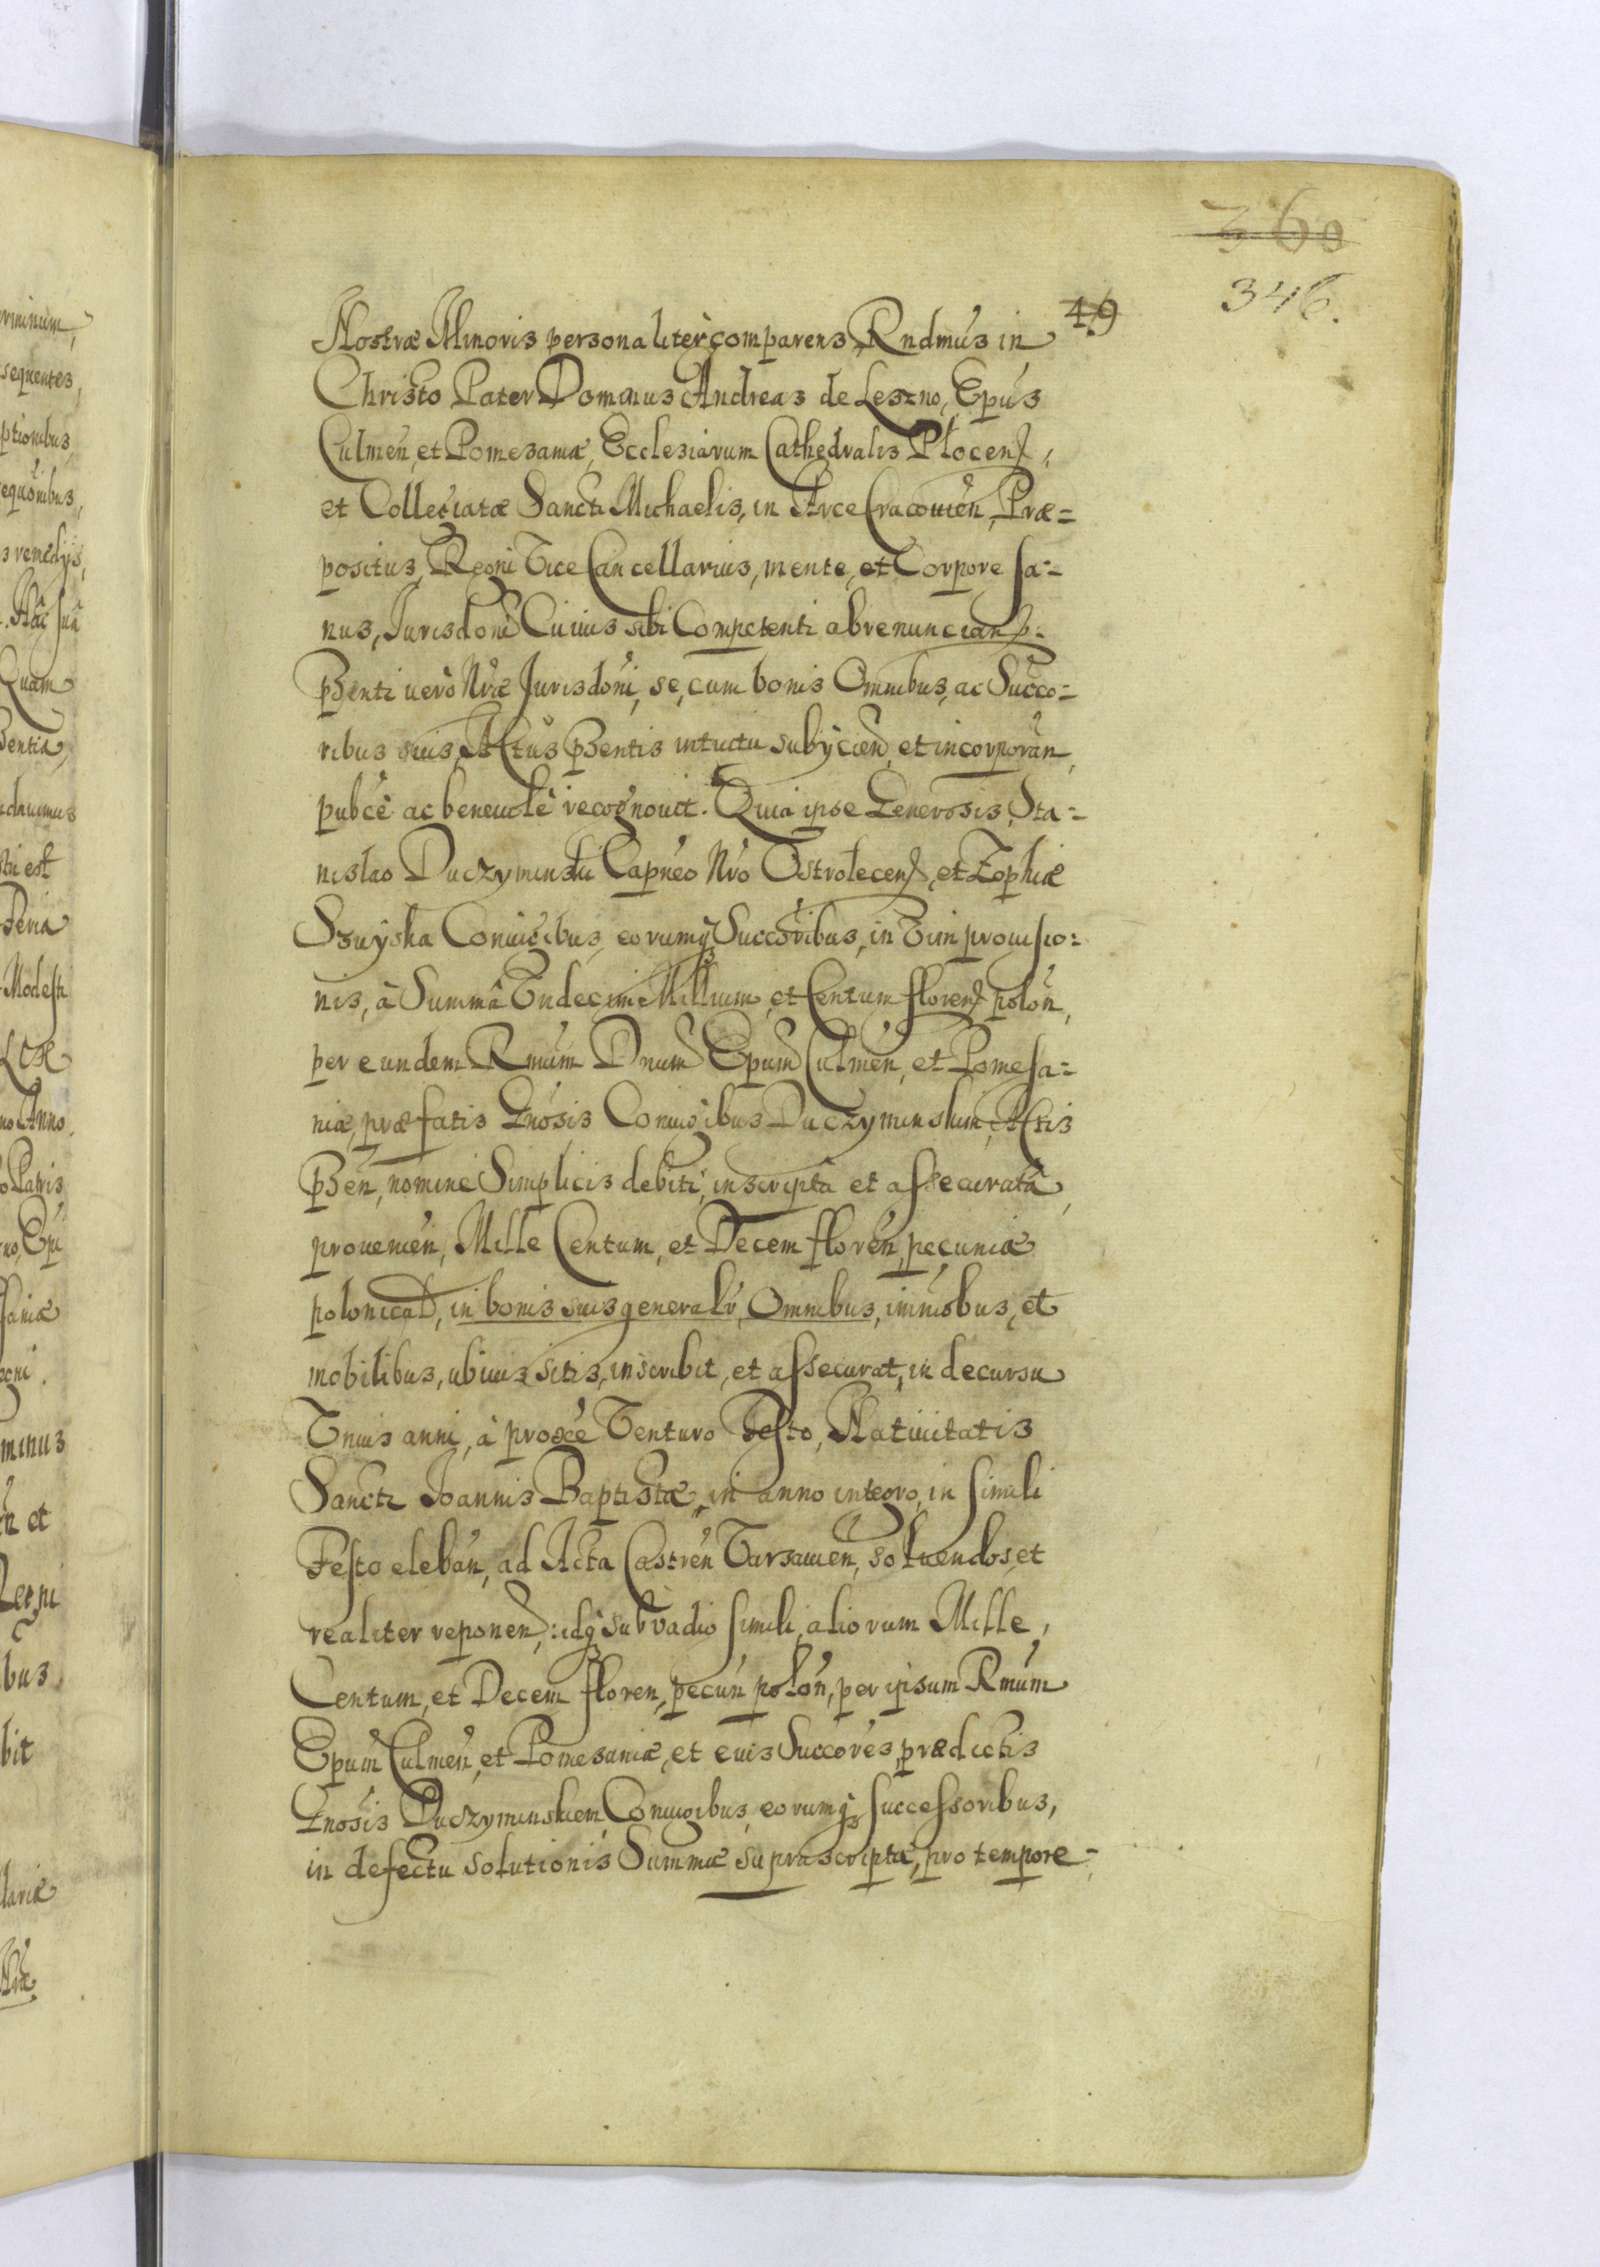 360
346.
49
Nostræ Minoris personaliter comparens Rndmus in
Christo Pater Dominus Andreas de Leszno, Epus
Culmen, et Pomesaniæ, Ecclesiarum Cathedralis Plocen,
et Collegiatæ Sancti Michaelis, in Arce Cracouien, Præ=
positus, Regni Vice Cancellarius, mente, et Corpore sa=
nus, Jurisdoni Cuiuis sibi Competenti abrenuncian
Pnti uero Nræ Jurisdoni, se, cum bonis Omnibus, ac Succo=
ribus suis, Actus Pntis intuitu subijcien, et incorporan,
pubce ac beneuole recognouit. Quia ipse Generosis, Sta=
nislao Duczyminski Capneo Nro Ostrolecen, et Zophiæ
Szuyska Coniugibus, eorumq Succoribus, in Vim prouisio=
nis, à Summâ Vndecim Millium, et Centum floren polon,
per eundem Rmum Dnum Epum Culmen, et Pomesa=
niæ, præfatis Gnosis Coniugibus Duczyminskim, Actis
Pnten, nomine Simplicis debiti, inscriptâ et assecuratâ,
prouenien, Mille Centum, et Decem floren, pecuniæ
polonical, in bonis suis generalr, Omnibus, immobus, et
mobilibus, ubiuis sitis, inscribit, et assecurat, in decursu
Vnius anni, à proxe Venturo Festo, Natiuitatis
Sancti Joannis Baptistæ, in anno integro, in simili
Festo eleban, ad Acta Castren Varsauien, soluendos, et
realiter reponen, idq sub vadio simili, aliorum Mille,
Centum, et Decem floren, pecun polon, per ipsum Rmum
Epum Culmen, et Pomesaniæ, et euis Succores prædictis
Gnosis Duczyminskiem, Coniugibus, eorumq successoribus,
in defectu solutionis Summæ suprascriptæ, pro tempore